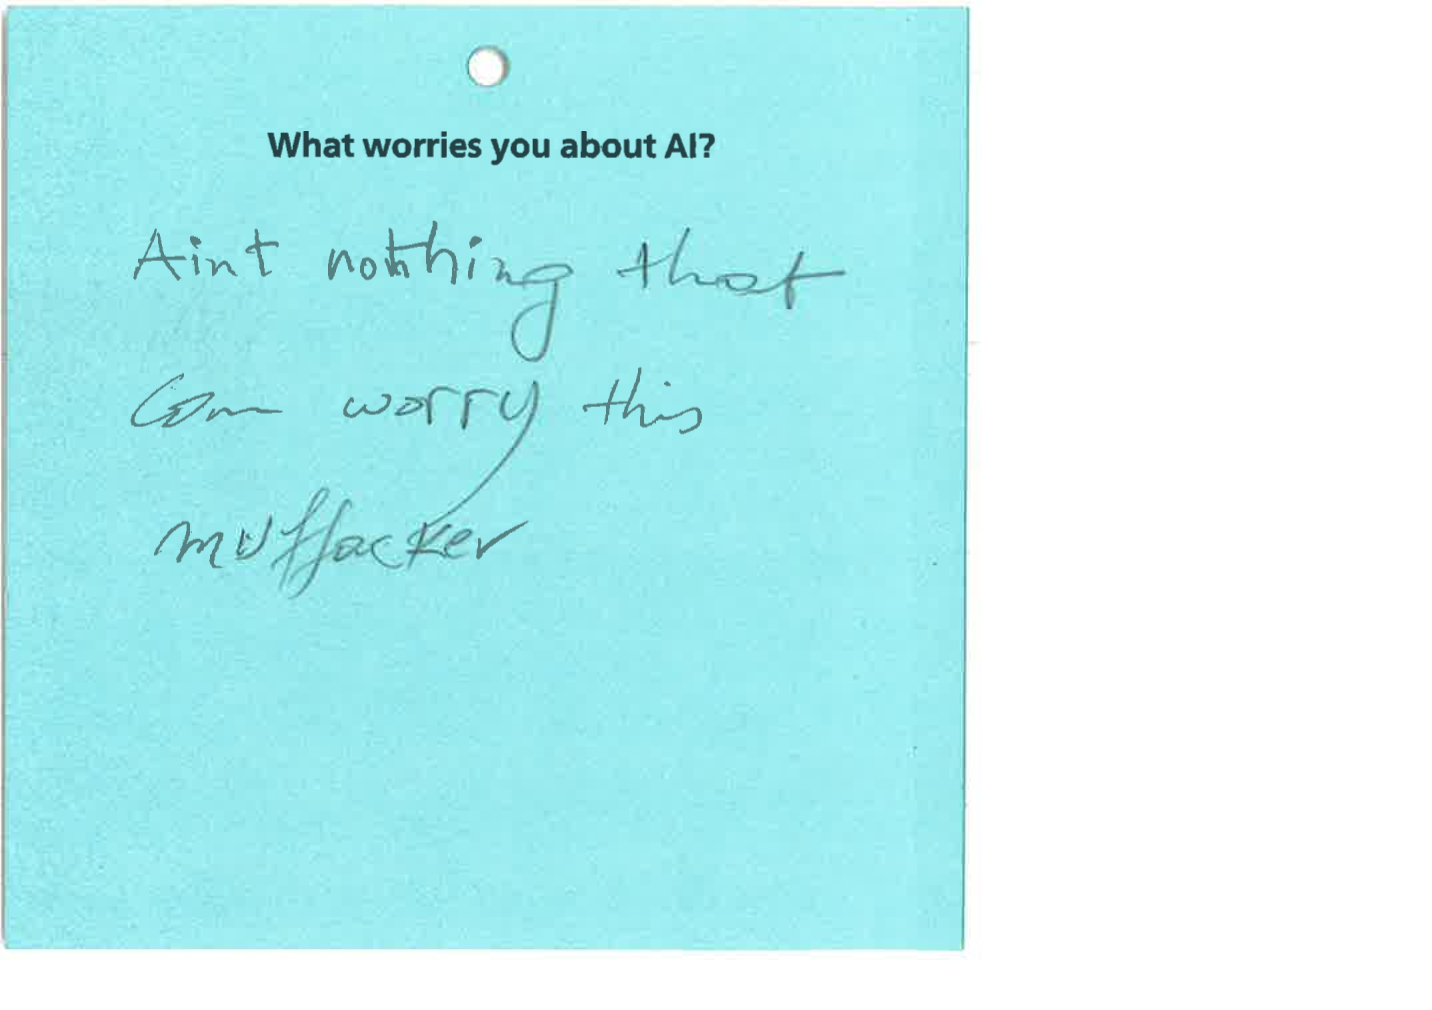 What worries you about AI?
Aint nothing that
Can worry this
muffacker